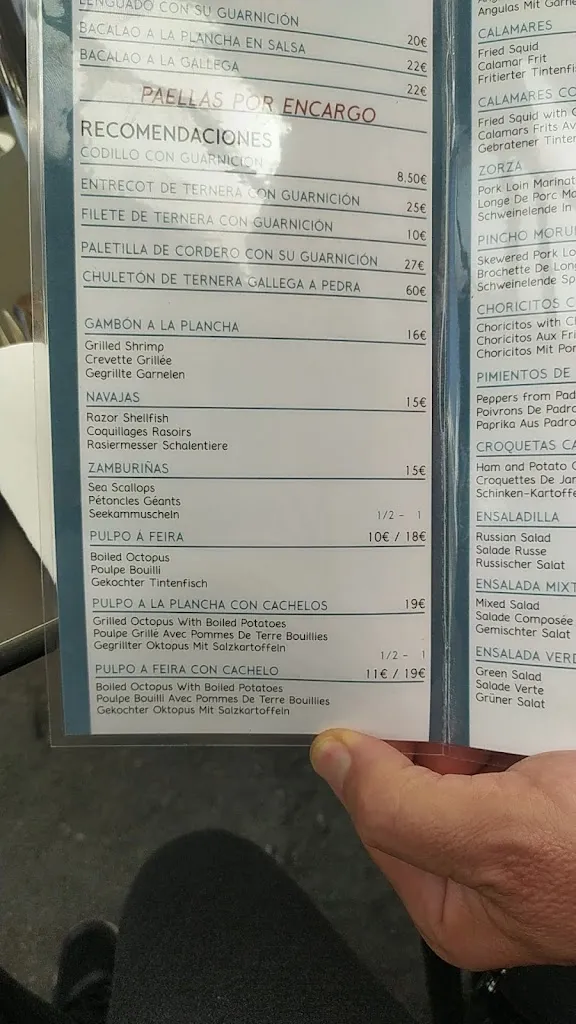 LENGUADO CON SU GUARNICIÓN 20€
BACALAO A LA PLANCHA EN SALSA 22€
BACALAO A LA GALLEGA 22€
PAELLAS POR ENCARGO
RECOMENDACIONES
CODILLO CON GUARNICIÓN 8,50€
ENTRECOT DE TERNERA CON GUARNICIÓN 25€
FILETE DE TERNERA CON GUARNICIÓN 10€
PALETILLA DE CORDERO CON SU GUARNICIÓN 27€
CHULETÓN DE TERNERA GALLEGA A PEDRA 60€
GAMBÓN A LA PLANCHA 16€
Grilled Shrimp
Crevette Grillée
Gegrillte Garnelen
NAVAJAS 15€
Razor Shellfish
Coquillages Rasoirs
Rasiermesser Schalentiere
ZAMBURIÑAS 15€
Sea Scallops
Pétoncles Géants
Seekammuscheln
1/2 - 1
PULPO Á FEIRA 10€ / 18€
Boiled Octopus
Poulpe Bouilli
Gekochter Tintenfisch
PULPO A LA PLANCHA CON CACHELOS 19€
Grilled Octopus With Boiled Potatoes
Poulpe Grillé Avec Pommes De Terre Bouillies
Gegrillter Oktopus Mit Salzkartoffeln
1/2 - 1
PULPO A FEIRA CON CACHELO 11€ / 19€
Boiled Octopus With Boiled Potatoes
Poulpe Bouilli Avec Pommes De Terre Bouillies
Gekochter Oktopus Mit Salzkartoffeln
Angulas Mit
CALAMARES
Fried Squid
Calamar Frit
Fritierter
CALAMARES
Fried Squid with
Calamars Frits
Gebratener
ZORZA
Pork Loin
Longe De Porc
Schweinelende In
PINCHO
Skewered Pork
Brochette De
Schweinelende
CHORICITOS
Choricitos with
Choricitos Aux
Choricitos Mit
PIMIENTOS DE
Peppers from
Poivrons De
Paprika Aus
CROQUETAS
Ham and Potato
Croquettes De
Schinken-
ENSALADILLA
Russian Salad
Salade Russe
Russischer Salat
ENSALADA
Mixed Salad
Salade Composée
Gemischter Salat
ENSALADA
Green Salad
Salade Verte
Grüner Salat